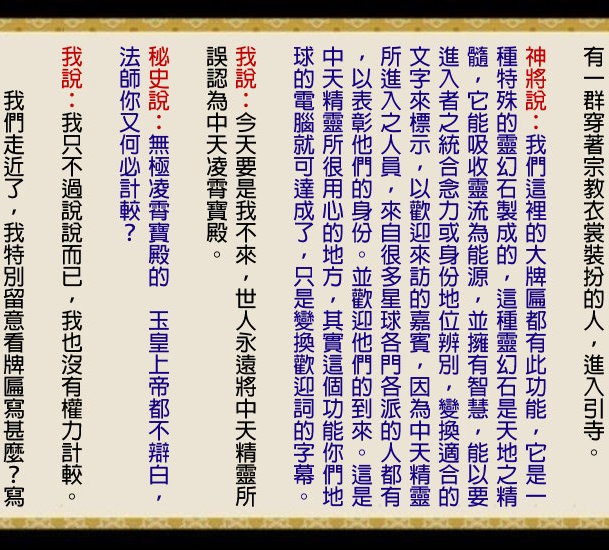 有一群穿著宗教衣裳裝扮的人，進入引寺。
神將說：我們這裡的大牌匾都有此功能，它是一
種特殊的靈幻石製成的，這種靈幻石是天地之精
髓，它能吸收靈流為能源，並擁有智慧，能以要
進入者之統合念力或身份地位辨別，變換適合的
文字來標示，以歡迎來訪的嘉賓，因為中天精靈
所進入之人員，來自很多星球各門各派的人都有
，以表彰他們的身份。並歡迎他們的到來。這是
中天精靈所很用心的地方，其實這個功能你們地
球的電腦就可達成了，只是變換歡迎詞的字幕。
我說：今天要是我不來，世人永遠將中天精靈所
誤認為中天凌霄寶殿。
秘史說：無極凌霄寶殿的　玉皇上帝都不辯白，
法師你又何必計較？
我說：我只不過說說而已，我也沒有權力計較。
我們走近了，我特別留意看牌匾寫甚麼？寫